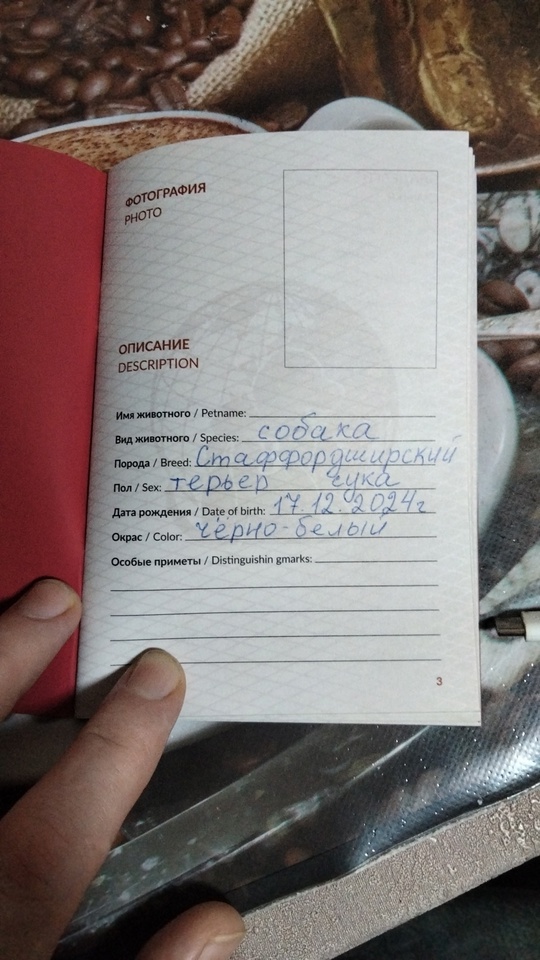 ФОТОГРАФИЯ
PHOTO
ОПИСАНИЕ
DESCRIPTION
Имя животного / Petname:
Вид животного / Species: собака
Порода / Breed: Стаффордширский
Пол / Sex: терьер сука
Дата рождения / Date of birth: 17.12.2024г
Окрас / Color: чёрно-белый
Особые приметы / Distinguishin gmarks:
3